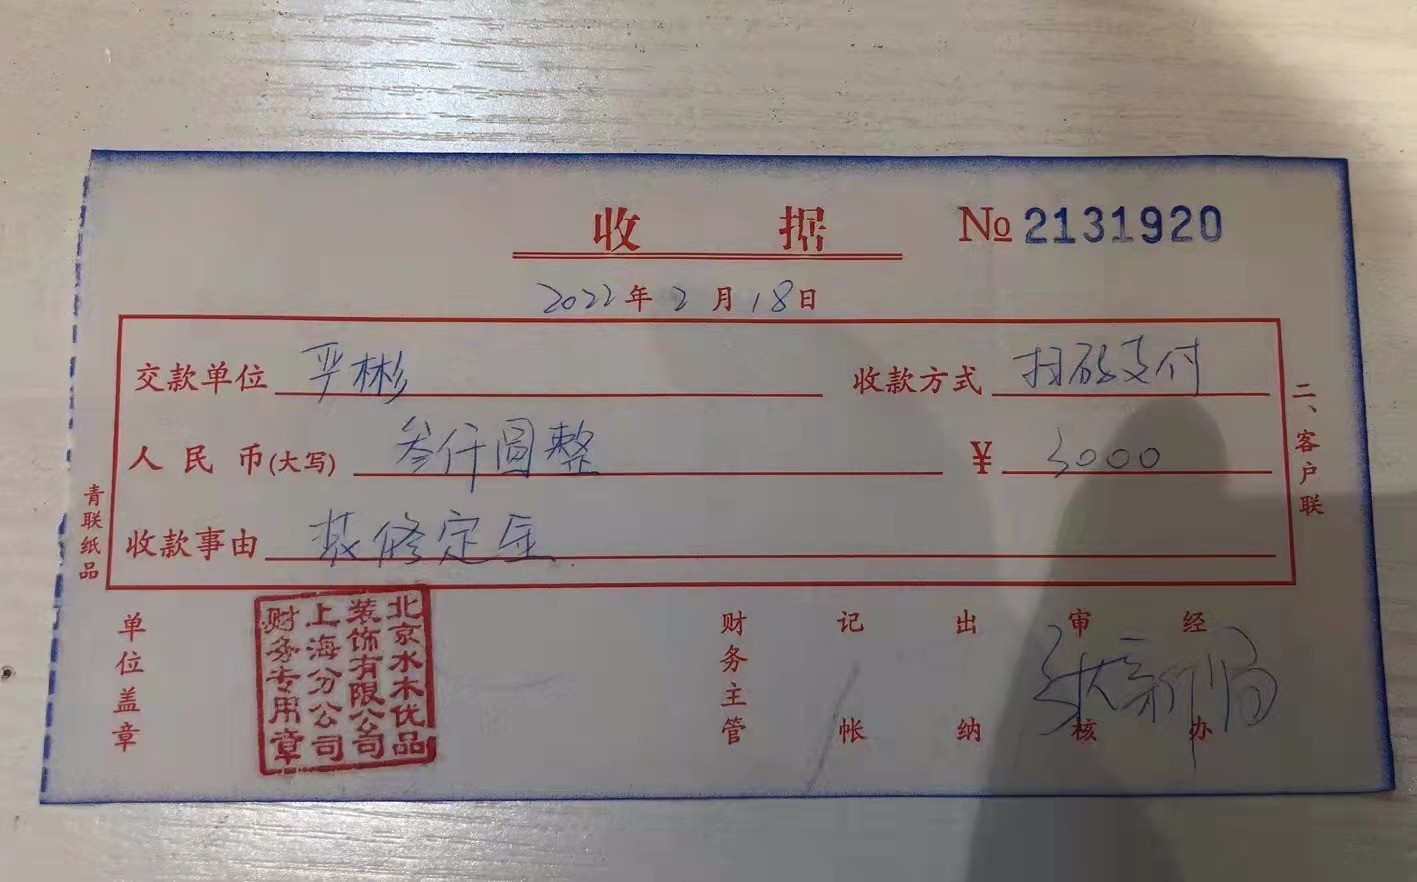 收 据 № 2131920
2022年2月18日
交款单位 严彬 收款方式 扫码支付
人民币(大写) 叁仟圆整 ¥ 3000
收款事由 装修定金
二、客户联
青联纸品
单位盖章
北京水木优品
装饰有限公司
上海分公司
财务专用章
财务主管 记帐 出纳 审核 经办